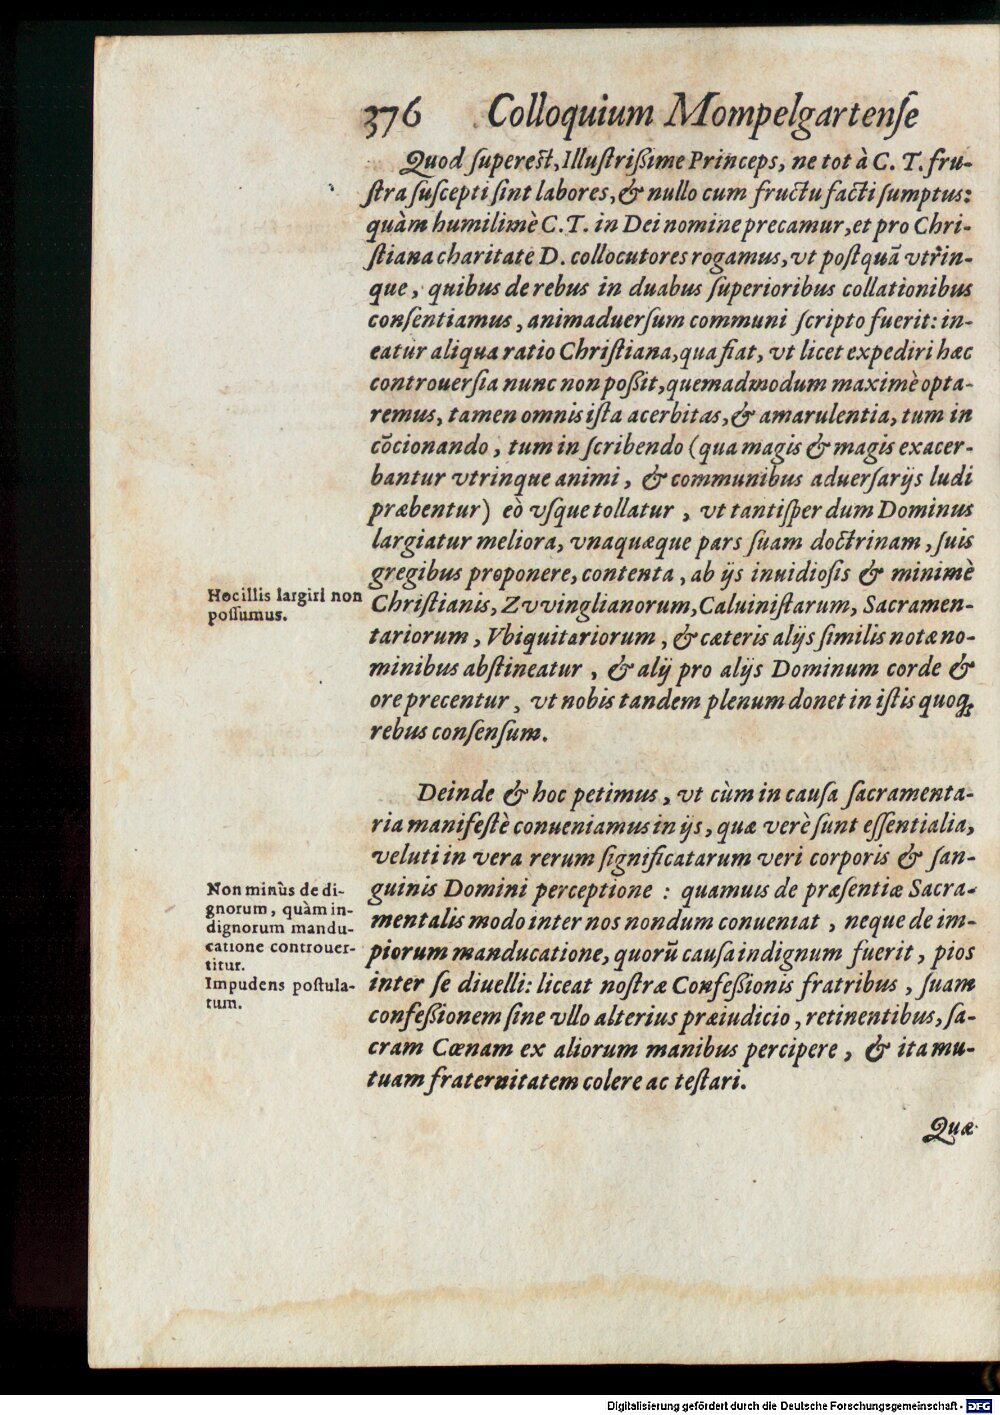 376 Colloquium Mompelgartenſe
Quod ſupereſt, Illuſtrißime Princeps, ne tot à C. T. fru-
ſtra ſuſcepti ſint labores, & nullo cum fructu facti ſumptus:
quàm humilimè C. T. in Dei nomine precamur, et pro Chri-
ſtiana charitate D. collocutores rogamus, vt poſtquā vtrin-
que, quibus de rebus in duabus ſuperioribus collationibus
conſentiamus, animaduerſum communi ſcripto fuerit: in-
eatur aliqua ratio Chriſtiana, qua fiat, vt licet expediri hæc
controuerſia nunc non poßit, quemadmodum maximè opta-
remus, tamen omnis iſta acerbitas, & amarulentia, tum in
cōcionando, tum in ſcribendo (qua magis & magis exacer-
bantur vtrinque animi, & communibus aduerſarijs ludi
præbentur) eò vſque tollatur, vt tantiſper dum Dominus
largiatur meliora, vnaquæque pars ſuam doctrinam, ſuis
gregibus proponere, contenta, ab ijs inuidioſis & minimè
Hoc illis largiri non
poſſumus.
Chriſtianis, Zvvinglianorum, Caluiniſtarum, Sacramen-
tariorum, Vbiquitariorum, & cæteris alijs ſimilis notæ no-
minibus abſtineatur, & alij pro alijs Dominum corde &
ore precentur, vt nobis tandem plenum donet in iſtis quoq;
rebus conſenſum.
Deinde & hoc petimus, vt cùm in cauſa ſacramenta-
ria manifeſtè conueniamus in ijs, quæ verè ſunt eſſentialia,
veluti in vera rerum ſignificatarum veri corporis & ſan-
Non minùs de di-
gnorum, quàm in-
dignorum mandu-
catione controuer-
titur.
Impudens poſtula-
tum.
guinis Domini perceptione : quamuis de præſentiæ Sacra-
mentalis modo inter nos nondum conueniat, neque de im-
piorum manducatione, quorū cauſa indignum fuerit, pios
inter ſe diuelli: liceat noſtræ Confeßionis fratribus, ſuam
confeßionem ſine vllo alterius præiudicio, retinentibus, ſa-
cram Cœnam ex aliorum manibus percipere, & ita mu-
tuam fraternitatem colere ac teſtari.
Quæ
Digitalisierung gefördert durch die Deutsche Forschungsgemeinschaft - DFG